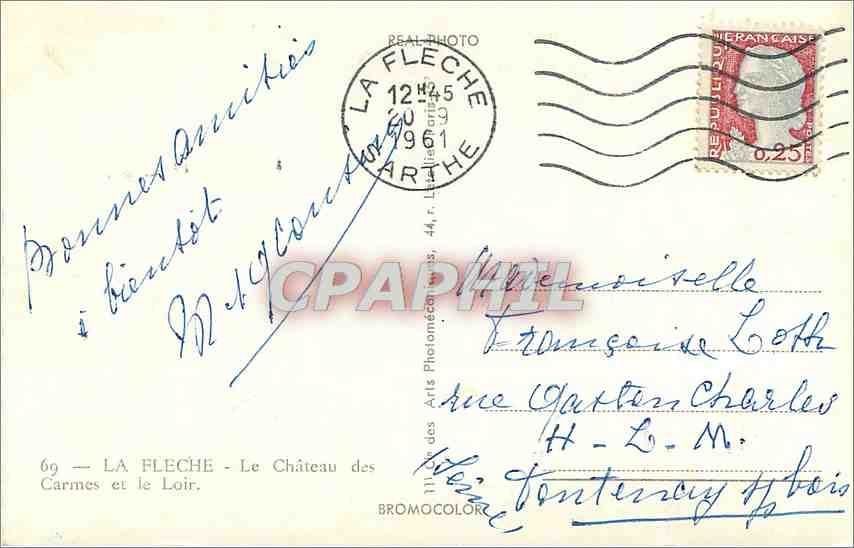 REAL PHOTO
LA FLECHE
12H45
20 9
1961
SARTHE
REPUBLIQUE FRANÇAISE
0,25
Bonnes amitiés
à bientôt
M et
CPAPHIL
Mademoiselle
Françoise Loth
rue Gaston Charles
H-L-M.
Fontenay s/s bois
(Seine)
69 — LA FLECHE - Le Château des
Carmes et le Loir.
des Arts Photomécaniques, 44, r. Letellier, Paris
BROMOCOLOR